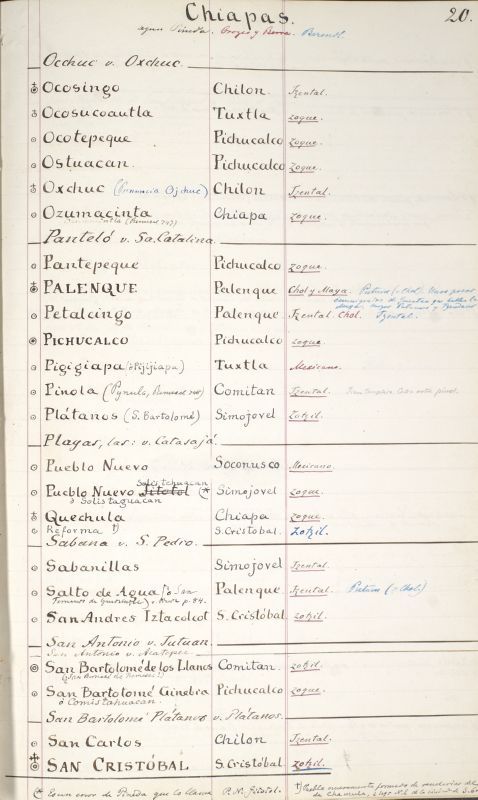 Chiapas. 20.
segun Pineda. Orozco y Berra. Berendt.
Occhuc v. Oxchuc.
Ocosingo Chilon Tzental.
Ocosucoautla Tuxtla zoque.
Ocotepeque Pichucalco zoque.
Ostuacan Pichucalco zoque.
Oxchuc (Pronuncia Ojchuc) Chilon Tzental.
Ozumacinta Chiapa zoque.
Panteló v. Sa. Catalina.
Pantepeque Pichucalco zoque.
PALENQUE Palenque Chol y Maya.
Petalcingo Palenque Tzental. Chol. Tzental.
PICHUCALCO Pichucalco zoque.
Pigigiapa (ò Pijijiapa) Tuxtla Mexicano.
Pinola (Pynula, Remesal) Comitan Tzental.
Plátanos (S. Bartolomé) Simojovel zotzil.
Playas, las: v. Catasajá.
Pueblo Nuevo Soconusco Mexicano.
Solistahuacan
Pueblo Nuevo Jitotol (* Simojovel zoque.
ò Solistaguacan
Quechula Chiapa zoque.
Reforma †) S. Cristóbal zotzil.
Sabana v. S. Pedro.
Sabanillas Simojovel Tzental.
Salto de Agua Palenque Tzental. (? Chol.)
San Andres Iztacolcot S. Cristóbal zotzil.
San Antonio v. Tutuan.
San Antonio v.
San Bartolomé de los Llanos Comitan. zotzil.
San Bartolomé Ginebra Pichucalco zoque.
ò Comistahuacan.
San Bartolomé Plátanos v. Plátanos.
San Carlos Chilon Tzental.
SAN CRISTÓBAL S. Cristóbal zotzil.
(* Es un error de Pineda que lo llama P. N. Jitotol.